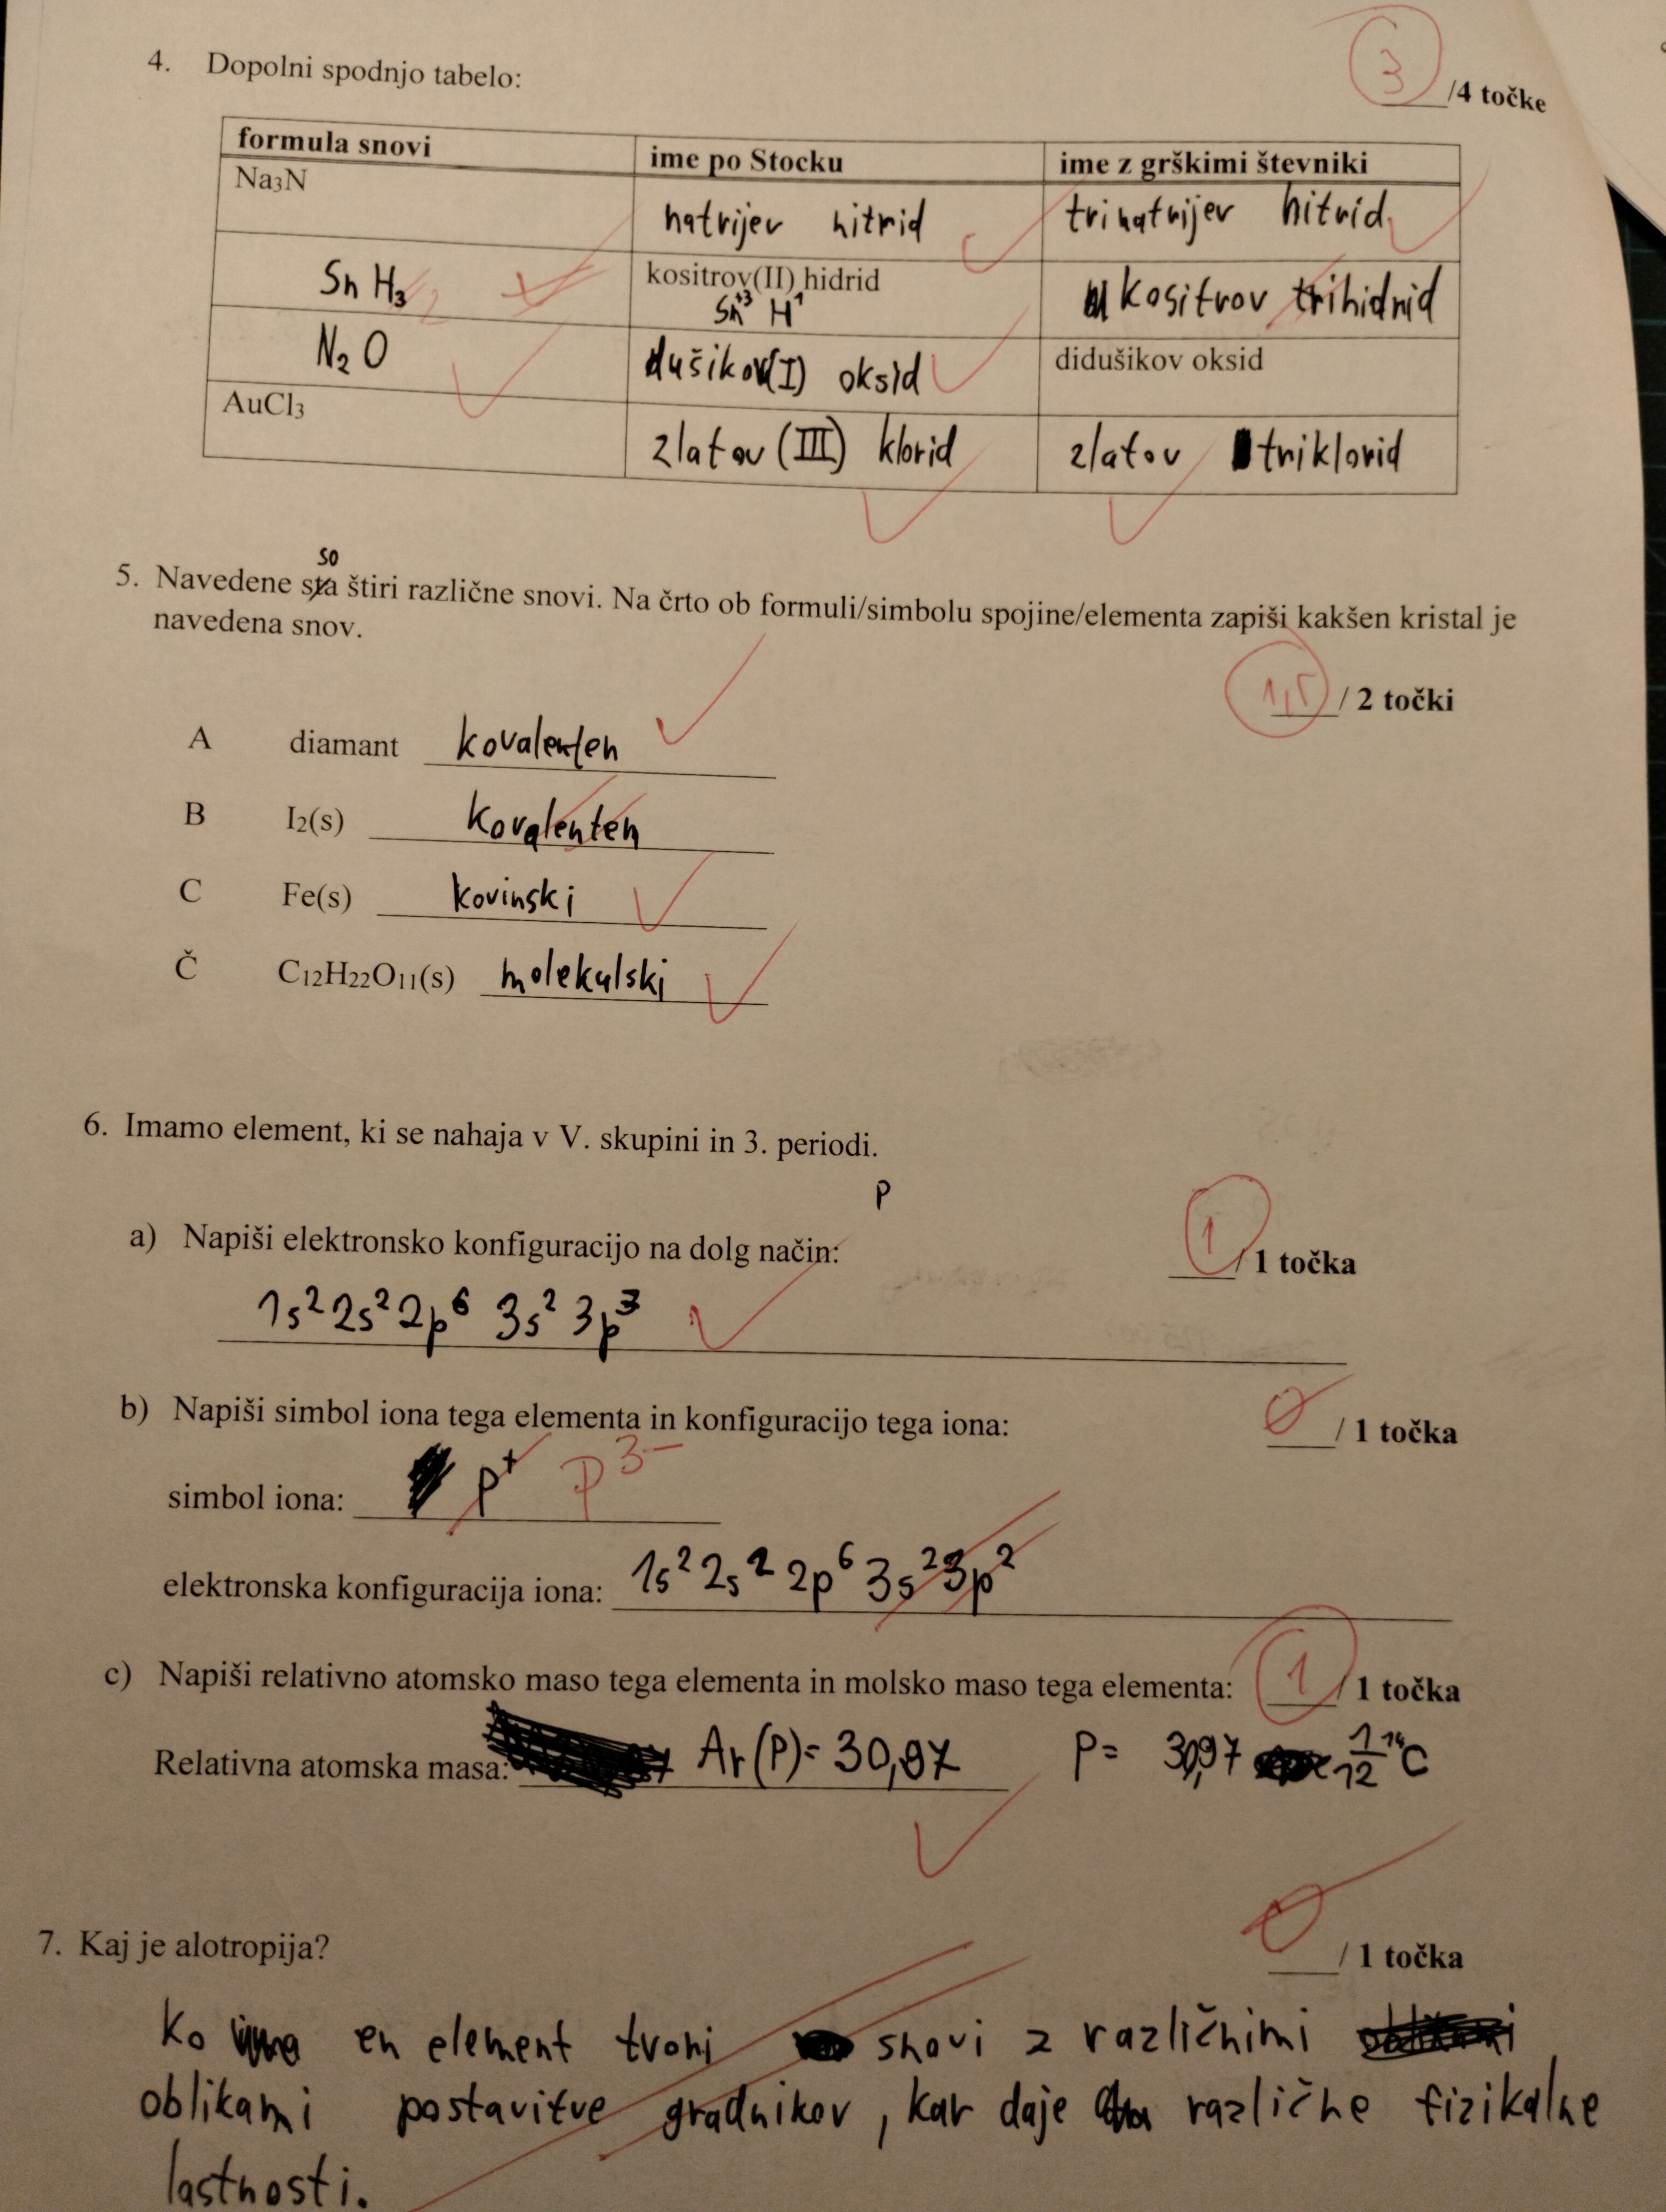 3
4. Dopolni spodnjo tabelo: ____/4 točke
formula snovi ime po Stocku ime z grškimi števniki
Na₃N natrijev nitrid trinatrijev nitrid
SnH₃ 2 kositrov(II) hidrid kositrov trihidrid
Sn⁺³ H⁻¹
N₂O dušikov(I) oksid didušikov oksid
AuCl₃ zlatov (III) klorid zlatov triklorid
so
5. Navedene sta štiri različne snovi. Na črto ob formuli/simbolu spojine/elementa zapiši kakšen kristal je
navedena snov.
1,5 / 2 točki
A diamant kovalenten
B I₂(s) kovalenten
C Fe(s) kovinski
Č C₁₂H₂₂O₁₁(s) molekulski
6. Imamo element, ki se nahaja v V. skupini in 3. periodi.
P
a) Napiši elektronsko konfiguracijo na dolg način: 1 / 1 točka
1s² 2s² 2p⁶ 3s² 3p³
b) Napiši simbol iona tega elementa in konfiguracijo tega iona: 0 / 1 točka
simbol iona: P⁺ P³⁻
elektronska konfiguracija iona: 1s² 2s² 2p⁶ 3s² 3p²
c) Napiši relativno atomsko maso tega elementa in molsko maso tega elementa: 1 / 1 točka
Relativna atomska masa: Ar(P)= 30,97 P= 30,97 1/12 ¹⁴C
7. Kaj je alotropija? 0 / 1 točka
Ko en element tvori snovi z različnimi
oblikami postavitve gradnikov, kar daje različne fizikalne
lastnosti.